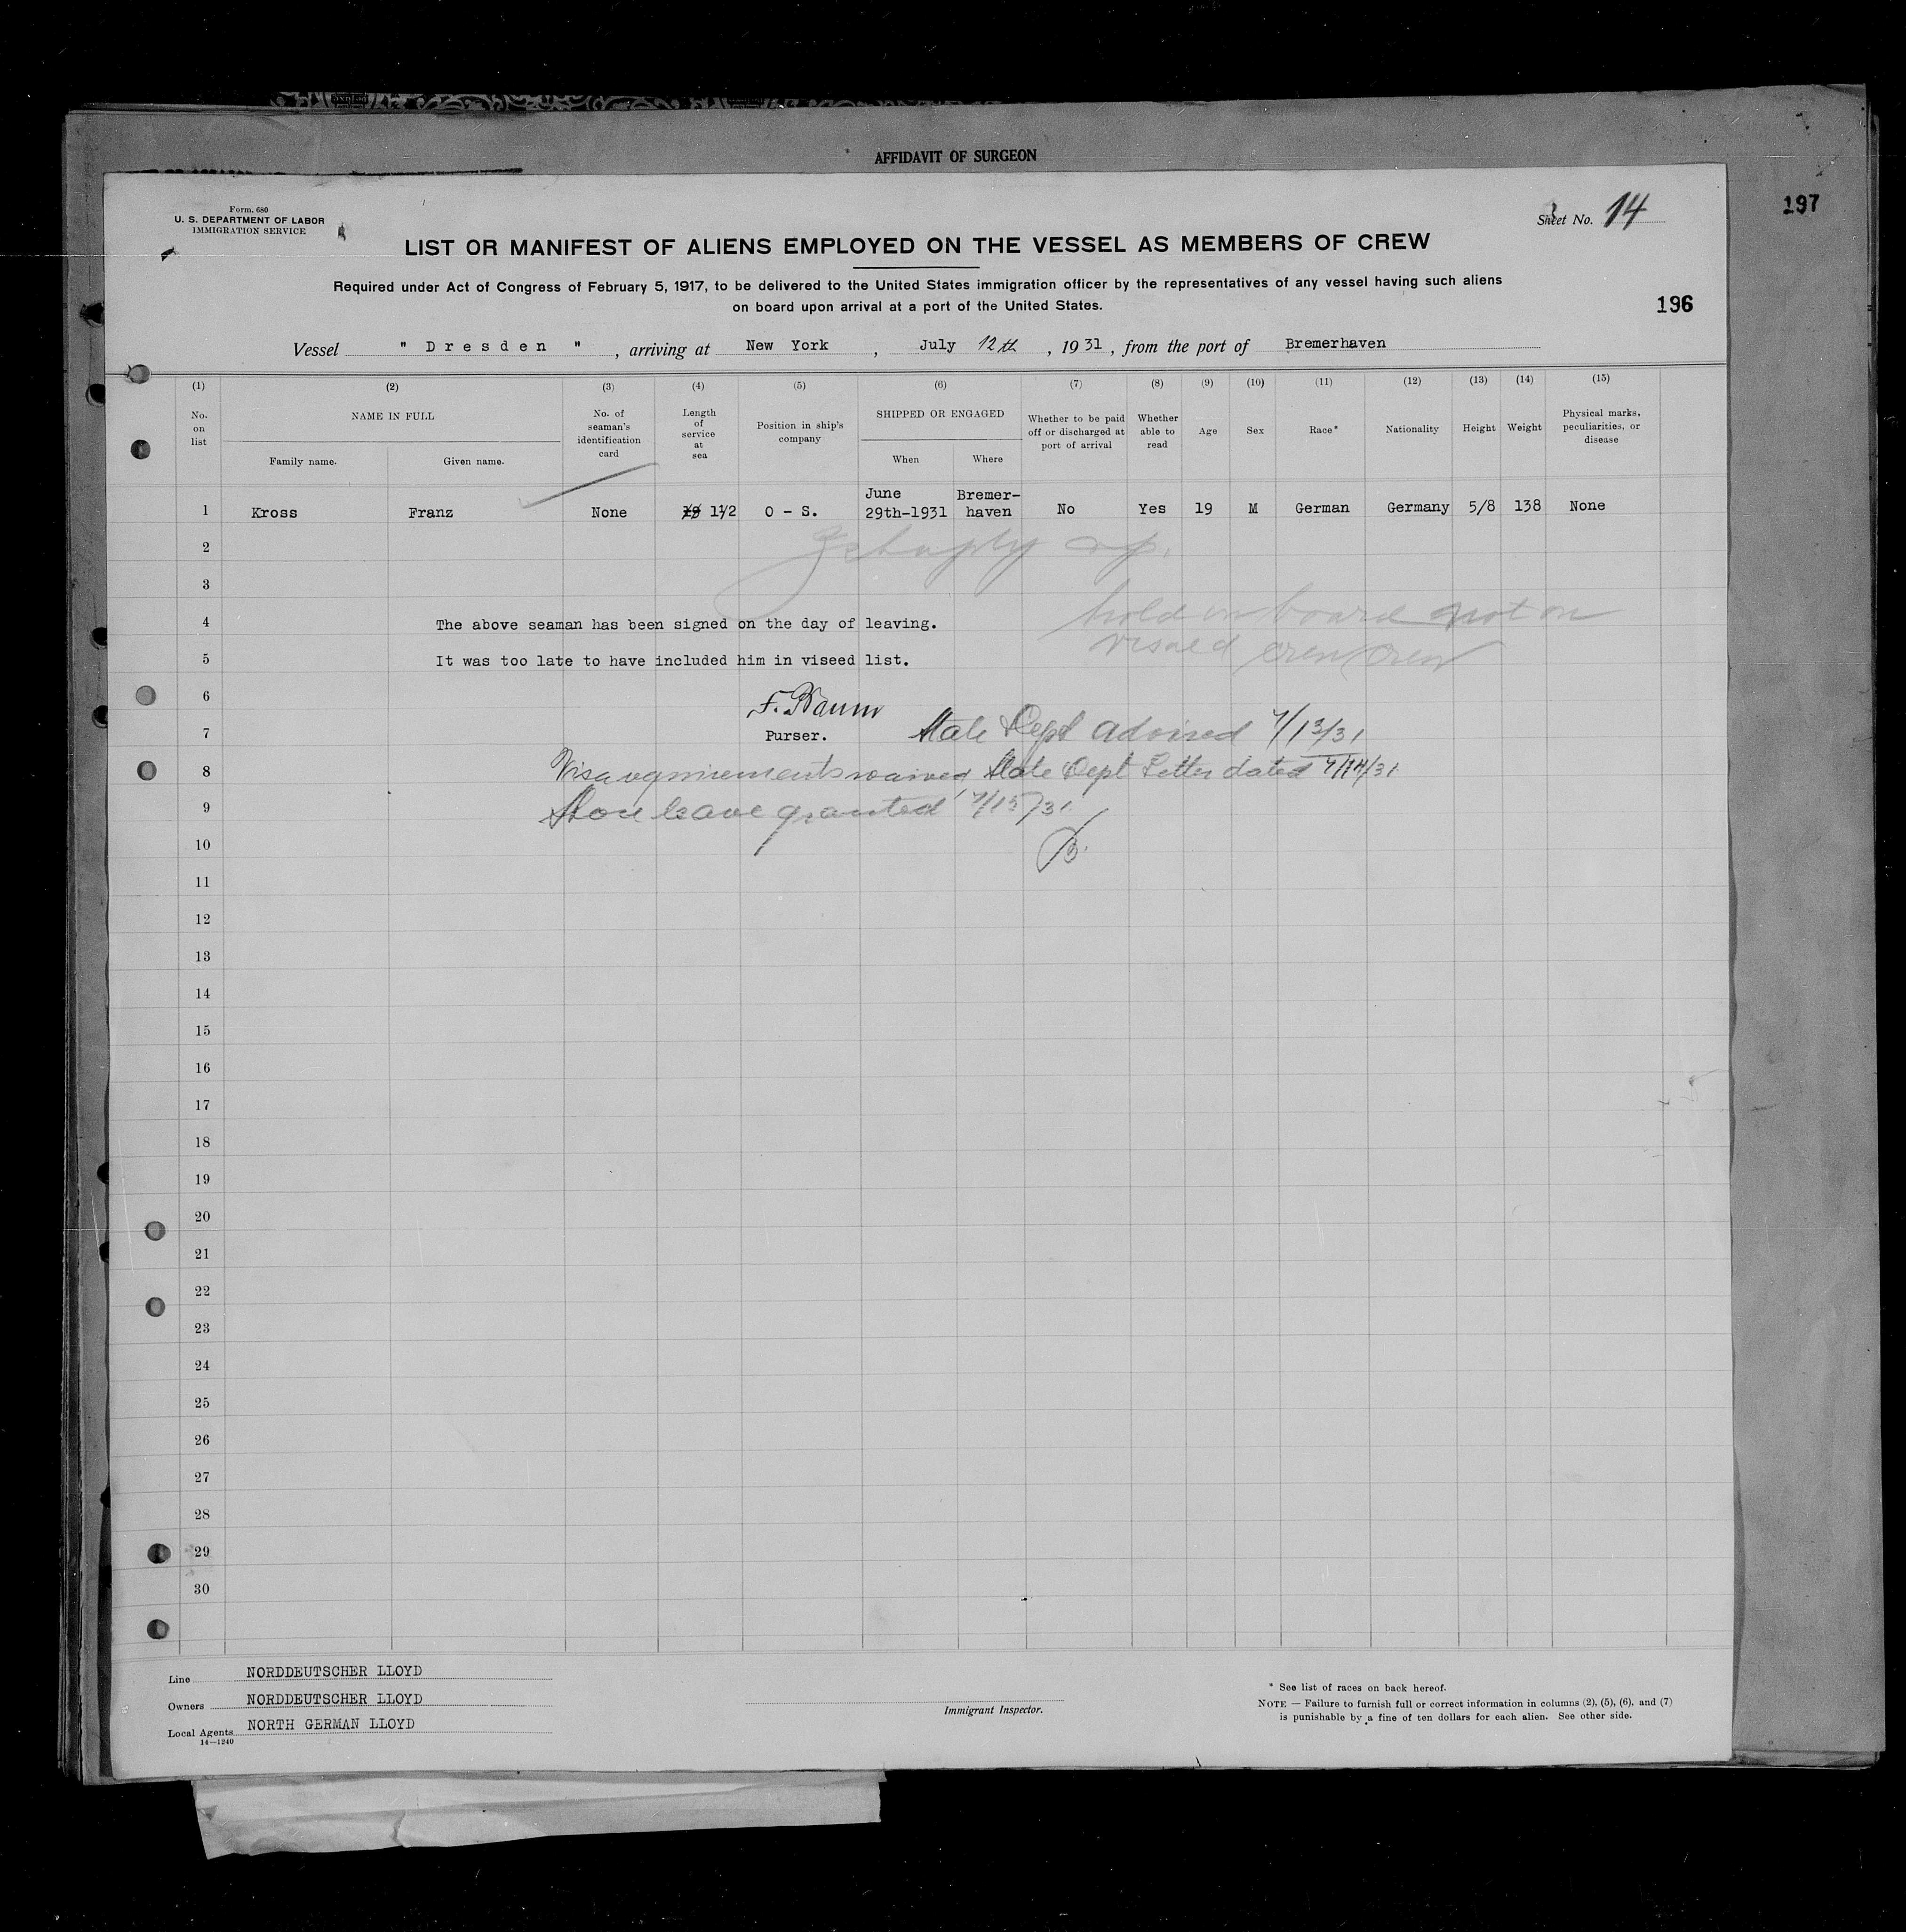 AFFIDAVIT OF SURGEON
197
Form. 680
U. S. DEPARTMENT OF LABOR
IMMIGRATION SERVICE
Sheet No. 14
LIST OR MANIFEST OF ALIENS EMPLOYED ON THE VESSEL AS MEMBERS OF CREW
Required under Act of Congress of February 5, 1917, to be delivered to the United States immigration officer by the representatives of any vessel having such aliens
on board upon arrival at a port of the United States.
196
Vessel " Dresden " , arriving at New York , July 12th , 1931 , from the port of Bremerhaven
(1) (2) (3) (4) (5) (6) (7) (8) (9) (10) (11) (12) (13) (14) (15)
No. on list
NAME IN FULL
Family name. Given name.
No. of seaman's identification card
Length of service at sea
Position in ship's company
SHIPPED OR ENGAGED
When Where
Whether to be paid off or discharged at port of arrival
Whether able to read
Age
Sex
Race*
Nationality
Height
Weight
Physical marks, peculiarities, or disease
1 Kross Franz None 1½ O - S. June 29th-1931 Bremer-haven No Yes 19 M German Germany 5/8 138 None
2
3
hold on board not on
4 The above seaman has been signed on the day of leaving.
visaed crew
5 It was too late to have included him in viseed list.
6 F. Baum
7 Purser. State Dept advised 7/13/31
8 Visa requirements waived, State Dept Letter dated 7/14/31
9 Shore leave granted 7/15/31
10
11
12
13
14
15
16
17
18
19
20
21
22
23
24
25
26
27
28
29
30
Line NORDDEUTSCHER LLOYD
Owners NORDDEUTSCHER LLOYD
Local Agents NORTH GERMAN LLOYD
14—1240
Immigrant Inspector.
* See list of races on back hereof.
NOTE — Failure to furnish full or correct information in columns (2), (5), (6), and (7)
is punishable by a fine of ten dollars for each alien. See other side.